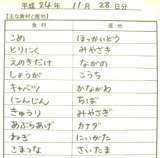 平成 24年 11月 28日分
【主な食材と産地】
食材 産地
こめ ほっかいどう
とりにく みやざき
えのきだけ ながの
しょうが こうち
キャベツ かながわ
にんじん ちば
きゅうり みやざき
あぶらあげ カナダ
ねぎ にいがた
こまつな さいたま